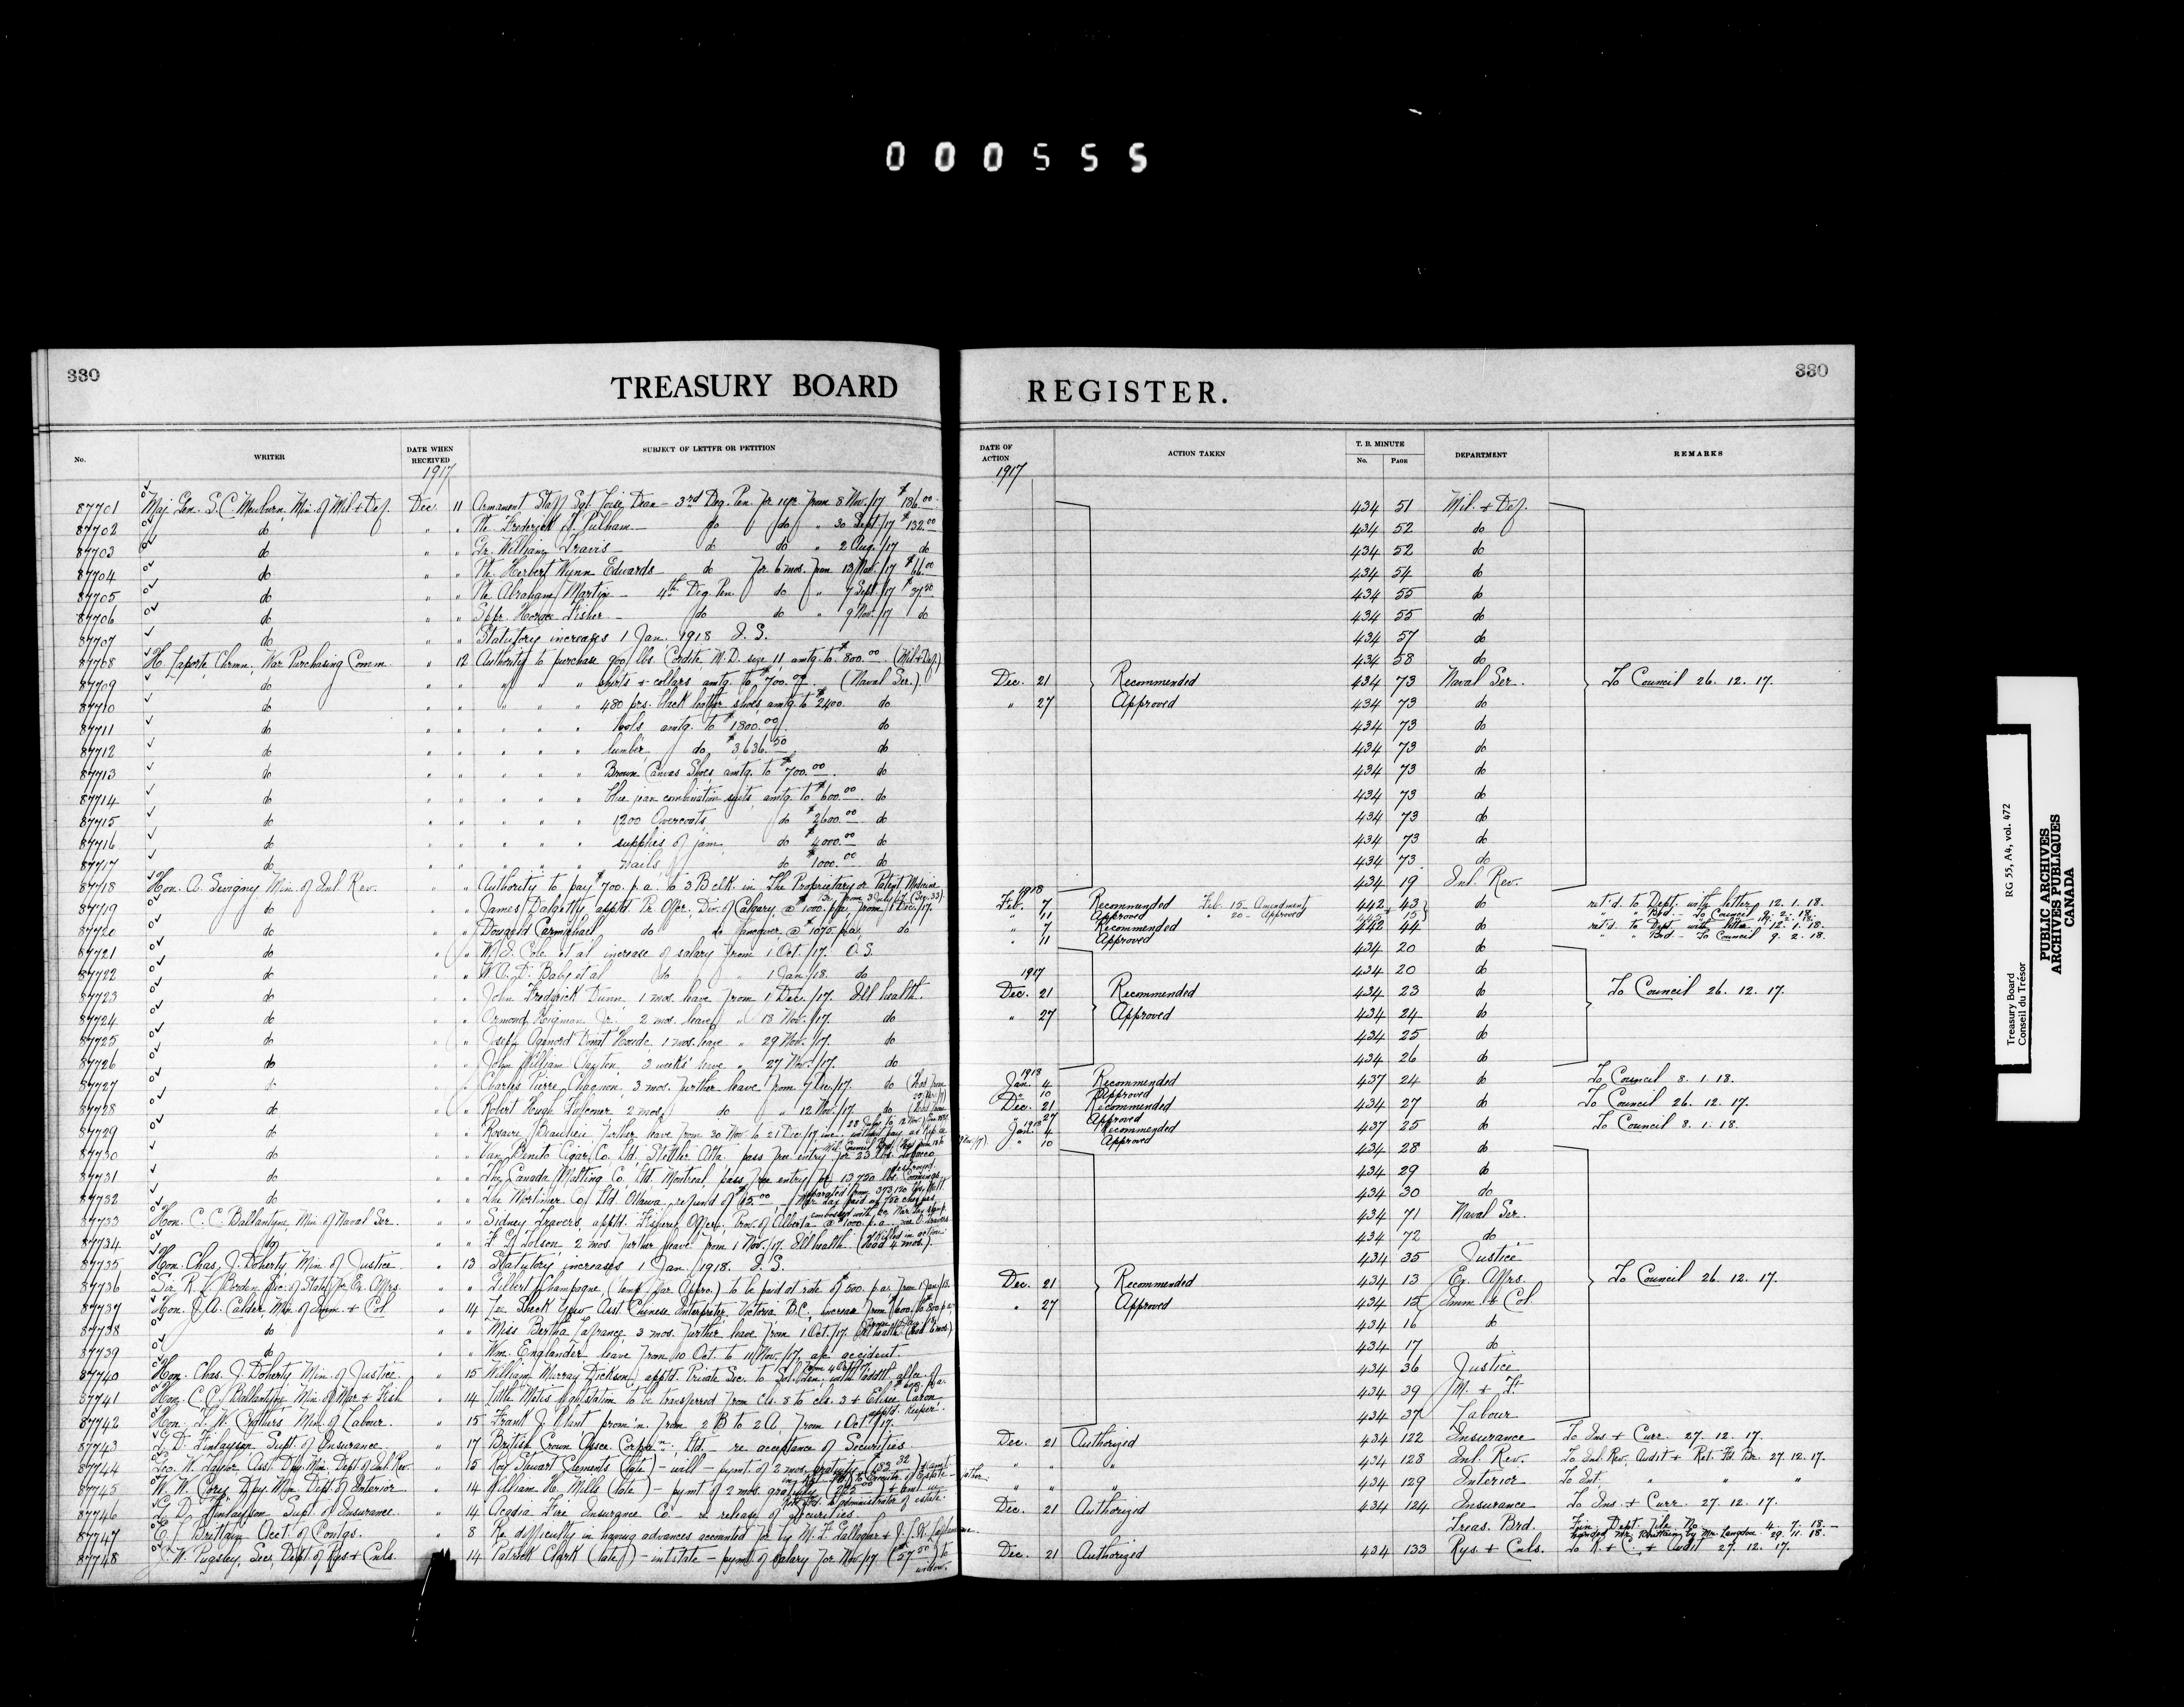 000555
330
TREASURY BOARD REGISTER.
330
No. WRITER DATE WHEN RECEIVED SUBJECT OF LETTER OR PETITION DATE OF ACTION ACTION TAKEN T. B. MINUTE No. PAGE DEPARTMENT REMARKS
1917 1917
87701 Maj. Gen. S.C. Mewburn, Min. of Mil. & Def. Dec. 11 Armament Staff Sgt. Dean – 3rd Deg. Pen. for 1 yr. from 8 Nov./17 $186.00 434 51 Mil. & Def.
87702 do " " Pte. Frederick Pulham – do do " 30 Sept./17 $132.00 434 52 do
87703 do " " Gr. William Travis – do do " 2 Aug./17 do 434 52 do
87704 do " " Pte. Herbert Wynn Edwards – do for 6 mos. from 13 Nov./17 $66.00 434 54 do
87705 do " " Pte. Abraham Martin – 4th Deg. Pen. do " 9 Sept./17 434 55 do
87706 do " " Sppr. Horace Fisher – do do " 9 Nov./17 do 434 55 do
87707 do " " Statutory increases 1 Jan. 1918 I.S. 434 57 do
87708 H. Laporte, Chrmn. War Purchasing Comm. " 12 Authority to purchase 900 lbs. Cordite M.D. size 11 amtg. to $800.00 (Mil & Def.) 434 58 do
87709 do " " " " " shirts & collars amtg. to $700.00 (Naval Ser.) Dec. 21 Recommended 434 73 Naval Ser. To Council 26. 12. 17.
87710 do " " " " " 480 prs. black leather shoes, amtg. to $2400. do " 27 Approved 434 73 do
87711 do " " " " " tools amtg. to $1800.00 do 434 73 do
87712 do " " " " " lumber do $3636.50 do 434 73 do
87713 do " " " " " Brown Canvas Shoes, amtg. to $700.00 do 434 73 do
87714 do " " " " " blue jean combination suits, amtg. to $600.00 do 434 73 do
87715 do " " " " " 1200 Overcoats do $2600.00 do 434 73 do
87716 do " " " " " supplies of jam do $4000.00 do 434 73 do
87717 do " " " " " nails do $1000.00 do 434 73 do
87718 Hon. A. Sevigny, Min. of Inl. Rev. " " Authority to pay $700. p.a. to 3 B clk. in The Proprietary or Patent Medicine 434 19 Inl. Rev.
87719 do " " James Dalgetty, apptd. Pr. Offcr., Div. of Calgary, @ $1000. p.a., from 1 Dec./17. 1918 Feb. 7 Recommended Feb. 15 – Amendment 442 43 do ret'd. to Dept. with letter 12. 1. 18.
" 11 Approved " 20 – Approved " " Brd. – To Council
87720 do " " Dougald Carmichael do do Vancouver @ $1075. p.a. do " 7 Recommended 442 44 do ret'd. to Dept. with letter 12. 1. 18.
" 11 Approved " " Brd. – To Council 9. 2. 18.
87721 do " " W. S. Cole et al increase of salary from 1 Oct./17. O.S. 434 20 do
87722 do " " W. A. D. Baby et al do " 1 Jan./18. do 434 20 do
87723 do " " John Fredrick Dunn, 1 mos. leave from 1 Dec./17. Ill health. 1917 Dec. 21 Recommended 434 23 do To Council 26. 12. 17.
87724 do " " Ormond Higman Jr., 2 mos. leave " 18 Nov./17. do " 27 Approved 434 24 do
87725 do " " Joseph Houde, 1 mos. leave " 29 Nov./17. do 434 25 do
87726 do " " John William Clayton, 3 weeks' leave " 27 Nov./17. do 434 26 do
87727 do " " Charles Pierre Chagnon, 3 mos. further leave from 7 Dec./17. do 1918 Jan. 4 Recommended 437 24 do To Council 8. 1. 18.
" 10 Approved
87728 do " " Robert Hugh 2 mos. do " 12 Nov./17 do Dec. 21 Recommended 434 27 do To Council 26. 12. 17.
" 27 Approved
87729 do " " Rosaire Beaulieu, further leave from 30 Nov. to 21 Dec./17 inc. 1918 Jan. 4 Recommended 437 25 do To Council 8. 1. 18.
" 10 Approved
87730 do " " Van Benito Cigar Co. Ltd., Stettler, Alta. pass free entry for 23 lbs. tobacco 434 28 do
destroyed.
87731 do " " The Canada Malting Co. Ltd. Montreal, pass free entry for 13,750 lbs. Coomings 434 29 do
87732 do " " The Mortimer Co. Ltd. Ottawa, refund of $15.00 434 30 do
87733 Hon. C. C. Ballantyne, Min. of Naval Ser. " " Sidney Travers, apptd. Fishery Offcr., Prov. of Alberta @ $1000. p.a. 434 71 Naval Ser.
killed in action
87734 do " " 2 mos. further leave from 1 Nov./17. Ill health. (Had 4 mos.) 434 72 do
87735 Hon. Chas. J. Doherty, Min. of Justice " 13 Statutory increases 1 Jan. 1918. I.S. 434 35 Justice
87736 Sir R. L. Borden, Sec. of State for Ex. Affrs. " " Gilbert Champagne, to be paid at rate of $500. p.a. from 1 Jan./18. Dec. 21 Recommended 434 13 Ex. Affrs. To Council 26. 12. 17.
87737 Hon. J. A. Calder, Min. of Imm. & Col. " 14 Lee Sheck Yew Asst. Chinese Interpreter Victoria B.C., increase from $600. to $800. p.a. " 27 Approved 434 15 Imm. & Col.
87738 do " " Miss Bertha Lafrance, 3 mos. further leave from 1 Oct./17. Ill health (Had 6 mos.) 434 16 do
87739 do " " Wm. Englander leave from 10 Oct. to 11 Nov./17, a/c accident. 434 17 do
87740 Hon. Chas. J. Doherty, Min. of Justice " 15 William Murray Dickson, apptd. Private Sec. to Sol. Gen., with addtl. allce. of 434 36 Justice
$600. p.a.
87741 Hon. C. C. Ballantyne, Min. of Mar. & Fish. " 14 Little Metis lightstation to be transferred from cls. 8 to cls. 3 & Elisee Caron 434 39 M. & F.
apptd. keeper.
87742 Hon. T. W. Crothers, Min. of Labour. " 15 Frank J. Plant prom'n. from 2 B to 2 A, from 1 Oct./17. 434 37 Labour
87743 G. D. Finlayson, Supt. of Insurance " 17 British Crown Assce. Corp'n. Ltd. – re acceptance of Securities Dec. 21 Authorized 434 122 Insurance To Ins. & Curr. 27. 12. 17.
87744 Geo. W. Taylor, Asst. Dep. Min. Dept. of Inl. Rev. " 15 Roy Stewart Clements (late) – will – pymt. of 2 mos. gratuity ($183.32) " " " 434 128 Inl. Rev. To Inl. Rev. Audit & Ret. Fd. Br. 27. 12. 17.
87745 W. W. Cory, Dpy. Min. Dept. of Interior " 14 William H. Mills (late) – pymt. of 2 mos. gratuity " " " 434 129 Interior To Int. " " "
to administrator of estate.
87746 G. D. Finlayson, Supt. of Insurance. " 14 Acadia Fire Insurance Co. – re release of securities Dec. 21 Authorized 434 124 Insurance To Ins. & Curr. 27. 12. 17.
87747 E. L. Brittain, Acct. of Contgs. " 8 Re difficulty in having advances accounted for by M. F. Gallagher & Treas. Brd. Fin. Dept. File No. 4. 7. 18. –
handed Mr. Brittain by Mr. Langdon 29. 11. 18.
87748 J. W. Pugsley, Sec., Dept. of Rys & Cnls. 14 Patrick Clark (late) – intestate – pymt. of salary for Nov./17 ($57.50) to Dec. 21 Authorized 434 133 Rys. & Cnls. To R. & C. & Audit 27. 12. 17.
widow.
Treasury Board RG 55, A4, vol. 472
Conseil du Trésor
PUBLIC ARCHIVES
ARCHIVES PUBLIQUES
CANADA